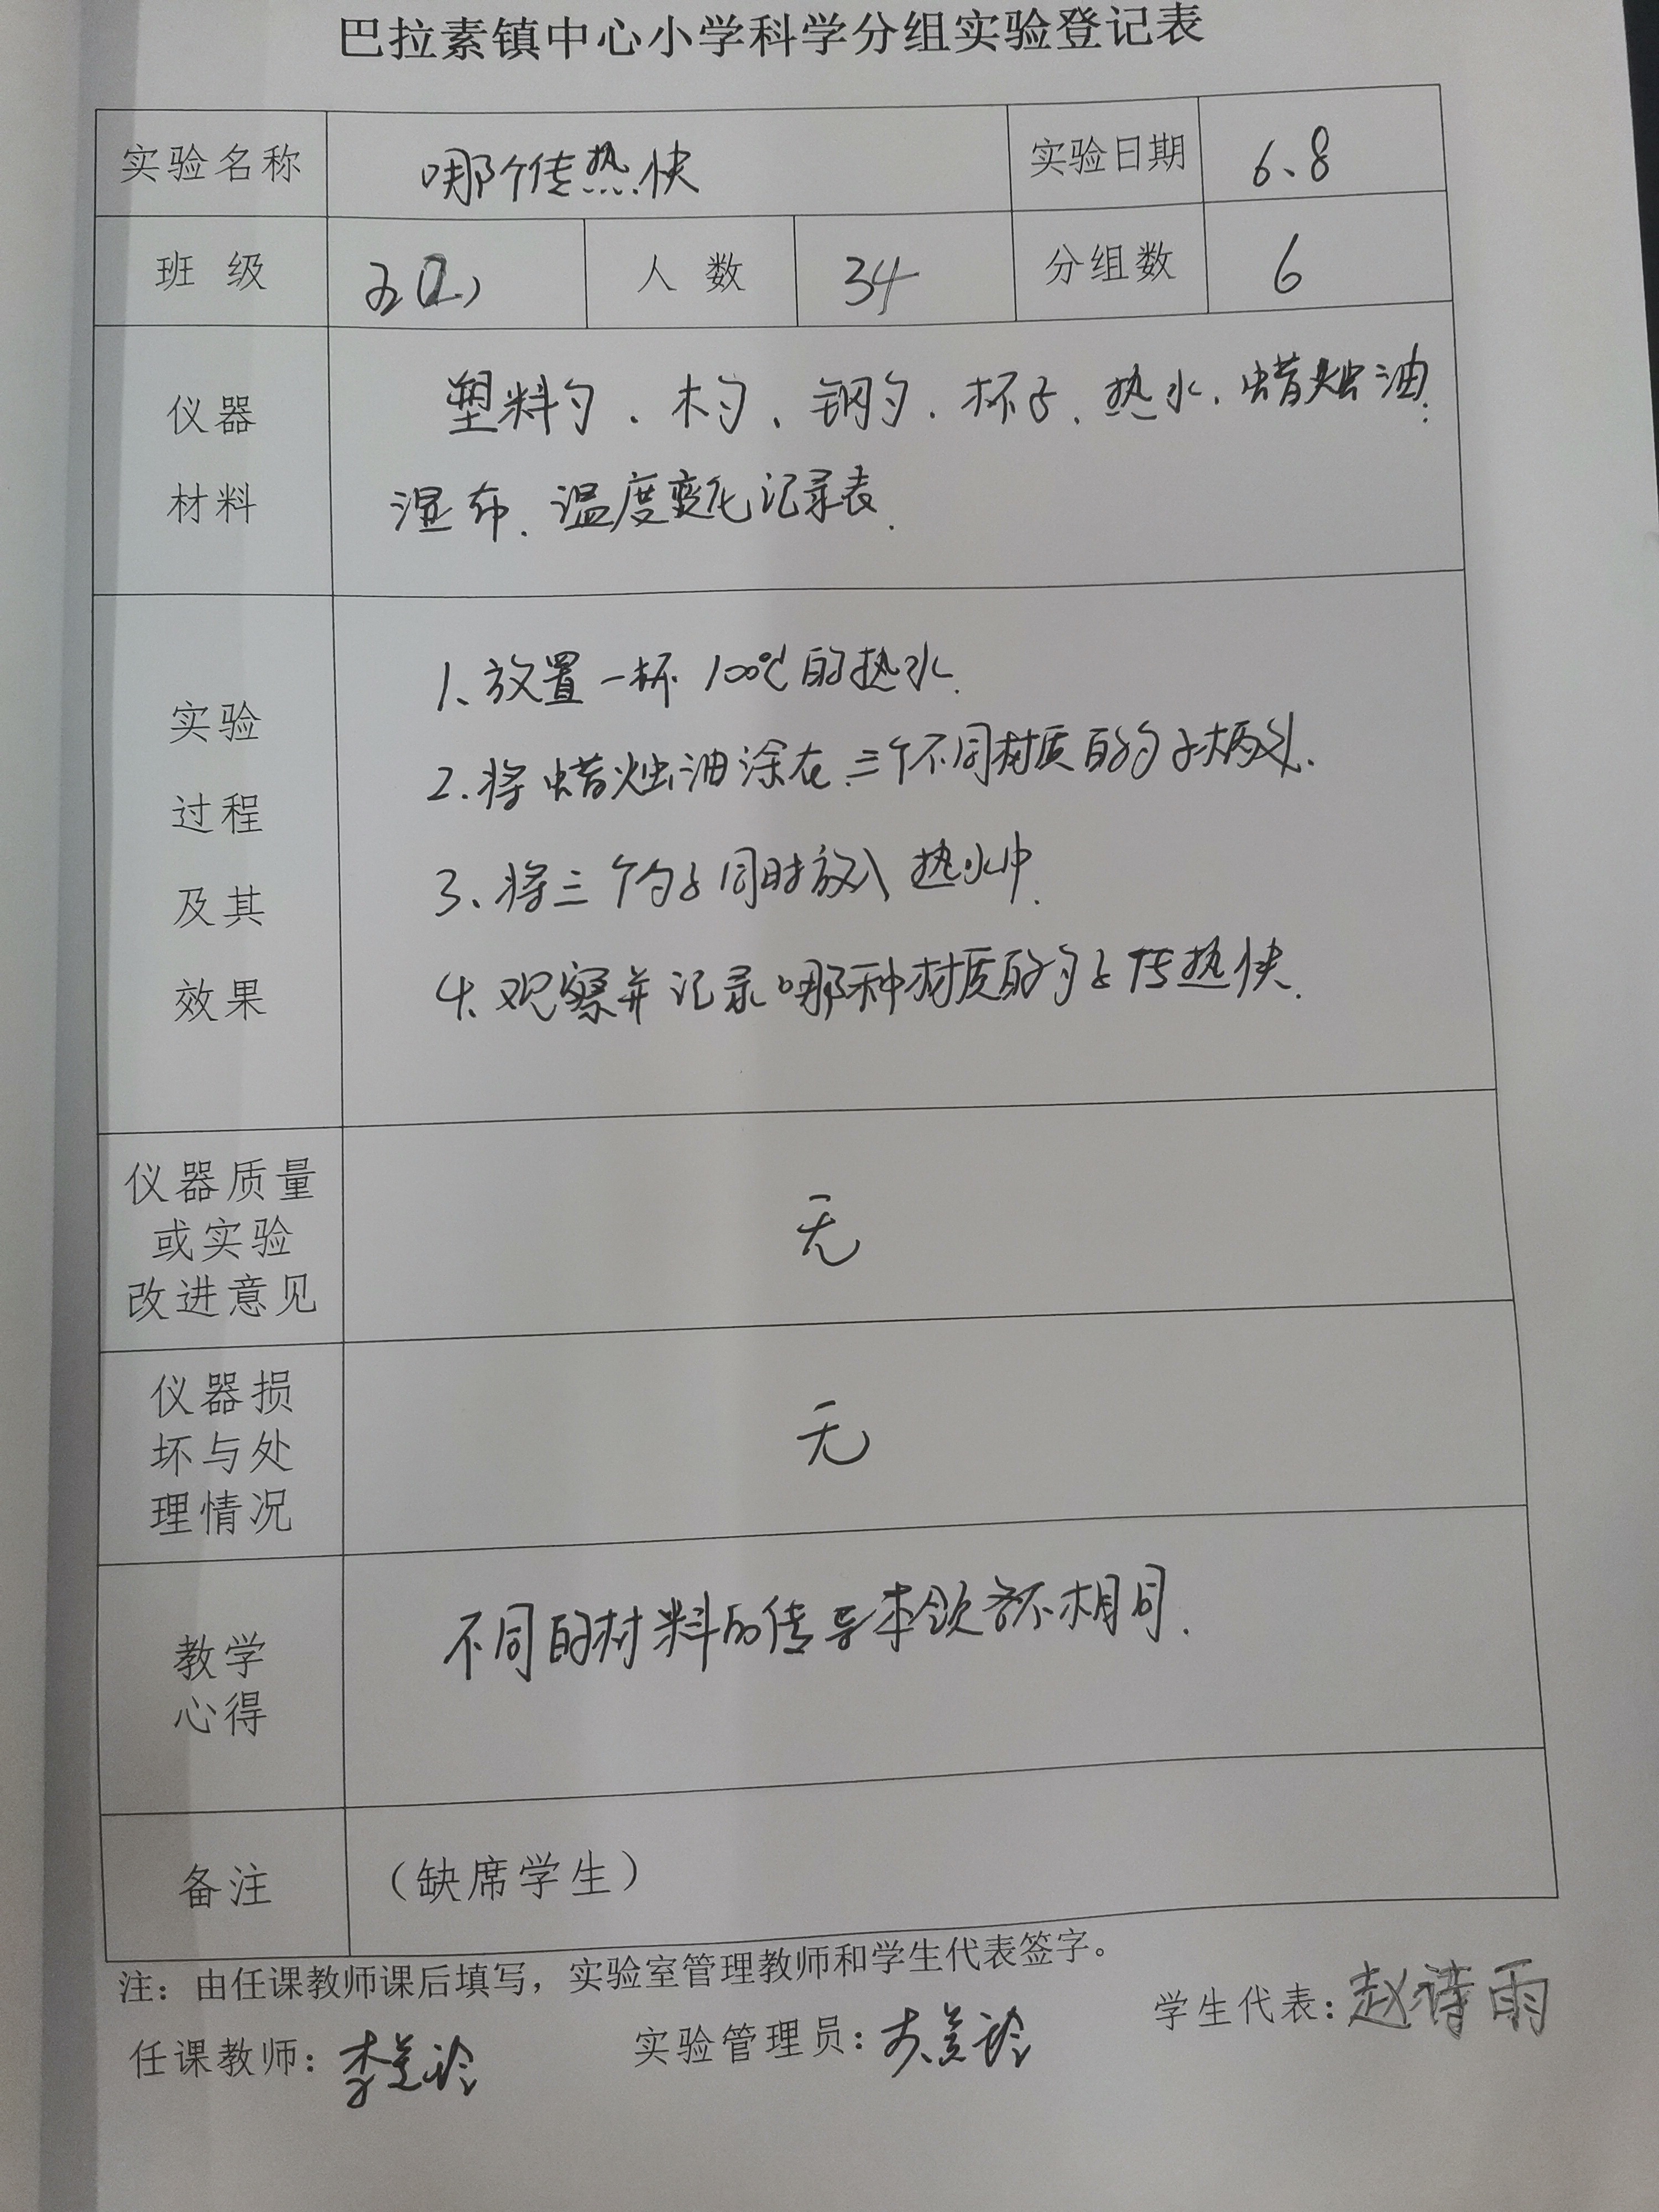 巴拉素镇中心小学科学分组实验登记表
实验名称 哪个传热快 实验日期 6.8
班 级 五(2) 人 数 34 分组数 6
仪器
材料
塑料勺、木勺、钢勺、杯子、热水、蜡烛油、
湿布、温度变化记录表.
实验
过程
及其
效果
1、放置一杯100℃的热水.
2.将蜡烛油涂在三个不同材质的勺子柄头.
3、将三个勺子同时放入热水中.
4.观察并记录哪种材质的勺子传热快.
仪器质量
或实验
改进意见
无
仪器损
坏与处
理情况
无
教学
心得
不同的材料的传导本领都不相同.
备注 (缺席学生)
注：由任课教师课后填写，实验室管理教师和学生代表签字。
任课教师：李
实验管理员：
学生代表：赵诗雨